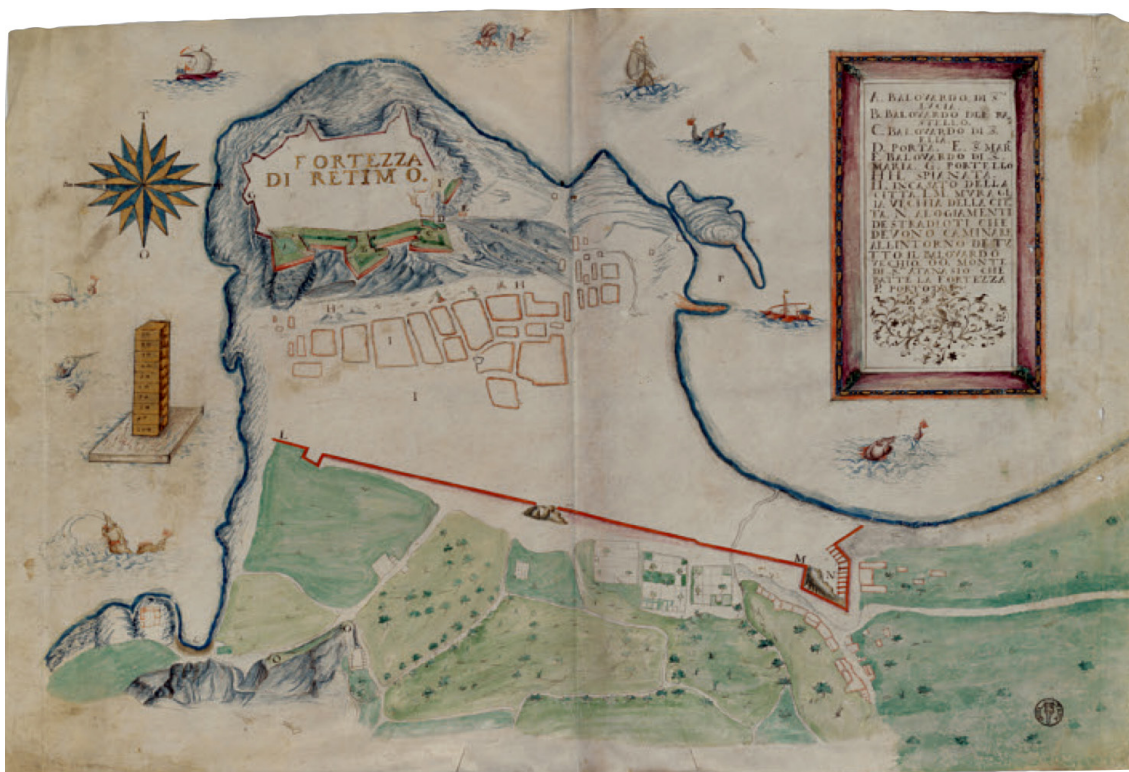 FORTEZZA
DI RETIMO.
A. BALOVARDO DI S.
LVCIA
B. BALOVARDO DEL PA
STELLO.
C. BALOVARDO DI S.
ELIA
D. PORTA. E. S. MAR
F. BALOVARDO DI S.
MARIA G. PORTELLO
HH. SPIANATA.
II. INCASATO DELLA
CITTA LM MVRAGL
IA VECHIA DELLA CIT
TA. N. ALOGIAMENTI
DE STRADIOTI CHE
DEVONO CAMINARE
ALL INTORNO DE TV
TTO IL BALOVARDO
VECHIO OO. MONTI
DI S. ATANASIO CHE
BATTE LA FORTEZZA
P. PORTO
T
O
G
F
H
H
I
I
P
L
M
N
O
O